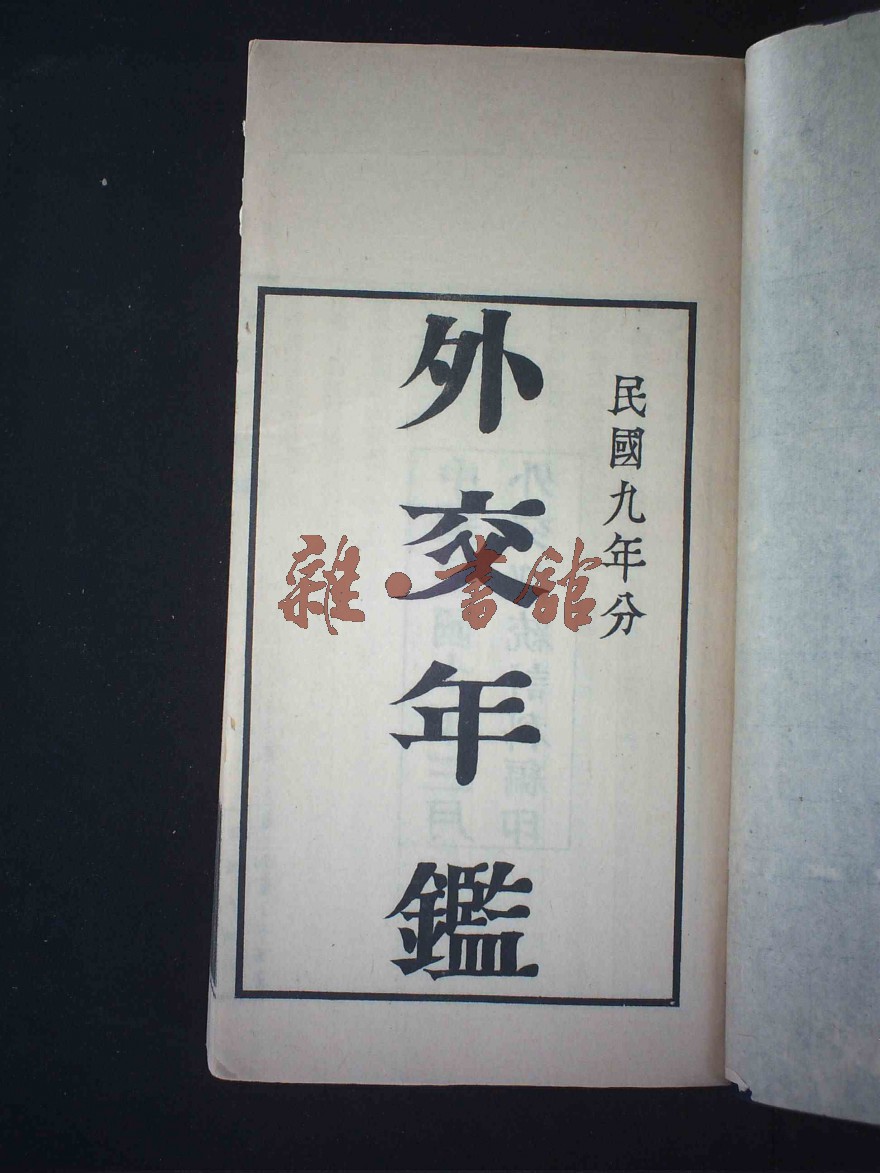 民國九年分
外交年鑑
雜·書館